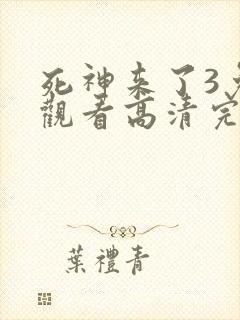 死神来了3
觀看高清完
葉禮青